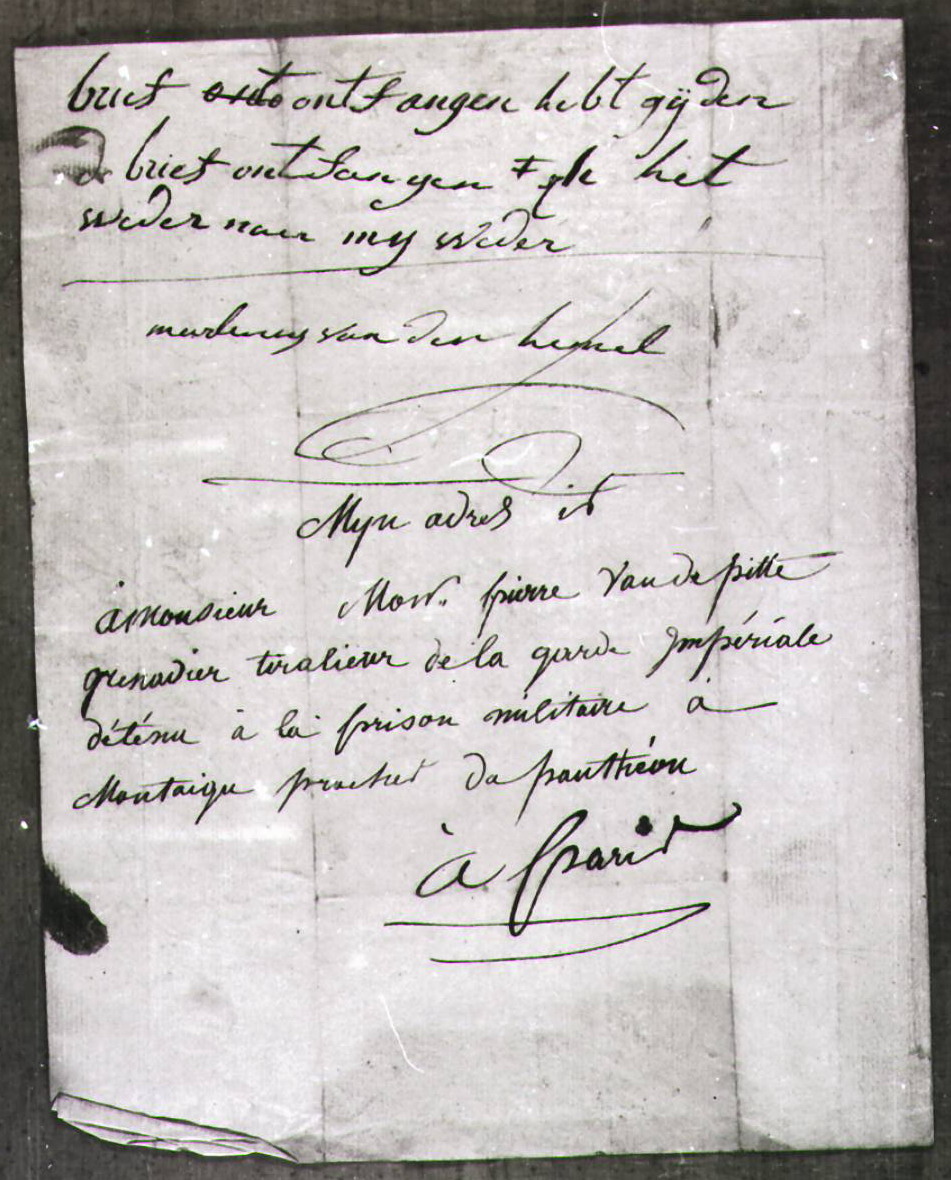 brief ontfangen hebt gÿ den
brief ontfangen het
weder naer my weder
van den hemel
Myn adres is
à Monsieur Monsr. pierre Vandepitte
grenadier tiralieur de la garde Impériale
déténu à la prison militaire à
Montaigu proches du panthéon
à paris